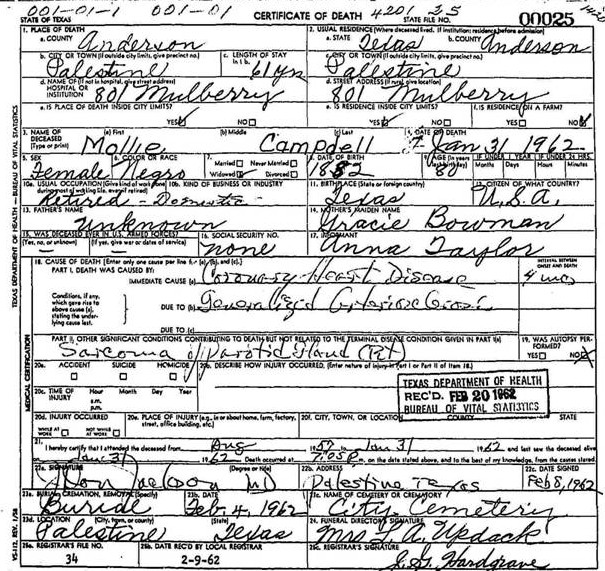 001-01-1 001-01 4201 25
STATE OF TEXAS CERTIFICATE OF DEATH STATE FILE NO. 00025
1. PLACE OF DEATH 2. USUAL RESIDENCE (Where deceased lived. If institution: residence before admission)
a. COUNTY Anderson a. STATE Texas b. COUNTY Anderson
b. CITY OR TOWN (If outside city limits, give precinct no.) c. LENGTH OF STAY in 1 b. c. CITY OR TOWN (If outside city limits, give precinct no.)
Palestine 61 yr Palestine
d. NAME OF (If not in hospital, give street address) HOSPITAL OR INSTITUTION 801 Mulberry d. STREET ADDRESS (If rural, give location) 801 Mulberry
e. IS PLACE OF DEATH INSIDE CITY LIMITS? e. IS RESIDENCE INSIDE CITY LIMITS? f. IS RESIDENCE ON A FARM?
YES NO YES NO YES NO
3. NAME OF DECEASED (Type or print) (a) First (b) Middle (c) Last 4. DATE OF DEATH
Mollie Campdell Jan 31 1962
5. SEX 6. COLOR OR RACE 7. Married Never Married Widowed Divorced 8. DATE OF BIRTH 9. AGE (In years last birthday) IF UNDER 1 YEAR IF UNDER 24 HRS.
Months Days Hours Minutes
Female Negro 1882 80
10a. USUAL OCCUPATION (Give kind of work done during most of working life, even if retired) 10b. KIND OF BUSINESS OR INDUSTRY 11. BIRTHPLACE (State or foreign country) 12. CITIZEN OF WHAT COUNTRY?
Retired - Domestic Texas U.S.A.
13. FATHER'S NAME 14. MOTHER'S MAIDEN NAME
Unknown Gracie Bowman
15. WAS DECEASED EVER IN U.S. ARMED FORCES? 16. SOCIAL SECURITY NO. 17. INFORMANT
(Yes, no, or unknown) (If yes, give war or dates of service)
none Anna Taylor
18. CAUSE OF DEATH [Enter only one cause per line for (a), (b), and (c).] INTERVAL BETWEEN ONSET AND DEATH
PART I. DEATH WAS CAUSED BY:
IMMEDIATE CAUSE (a) Coronary Heart Disease 4 mos
Conditions, if any, which gave rise to above cause (a), stating the underlying cause last.
DUE TO (b) Generalized
DUE TO (c)
PART II. OTHER SIGNIFICANT CONDITIONS CONTRIBUTING TO DEATH BUT NOT RELATED TO THE TERMINAL DISEASE CONDITION GIVEN IN PART I(a) 19. WAS AUTOPSY PERFORMED?
Sarcoma of Parotid Gland (Rt) YES NO
20a. ACCIDENT SUICIDE HOMICIDE 20b. DESCRIBE HOW INJURY OCCURRED. (Enter nature of injury in Part I or Part II of Item 18.)
20c. TIME OF INJURY Hour a.m. p.m. Month Day Year
TEXAS DEPARTMENT OF HEALTH
REC'D. FEB 20 1962
BUREAU OF VITAL STATISTICS
20d. INJURY OCCURRED WHILE AT WORK NOT WHILE AT WORK 20e. PLACE OF INJURY (e.g., in or about home, farm, factory, street, office building, etc.) 20f. CITY, TOWN, OR LOCATION COUNTY STATE
21. I hereby certify that I attended the deceased from Aug 1957 to Jan 31 1962 and last saw the deceased alive
on Jan 31 1962 Death occurred at 7:05 P m. on the date stated above, and to the best of my knowledge, from the causes stated.
22a. SIGNATURE (Degree or title) 22b. ADDRESS 22c. DATE SIGNED
MD Palestine Texas Feb 8, 1962
23a. BURIAL, CREMATION, REMOVAL (Specify) 23b. DATE 23c. NAME OF CEMETERY OR CREMATORY
Burial Feb. 4, 1962 City Cemetery
23d. LOCATION (City, town, or county) (State) 24. FUNERAL DIRECTOR'S SIGNATURE
Palestine Texas Mrs. F. A. Updack
25a. REGISTRAR'S FILE NO. 25b. DATE REC'D BY LOCAL REGISTRAR 25c. REGISTRAR'S SIGNATURE
34 2-9-62 Hardgrave
TEXAS DEPARTMENT OF HEALTH — BUREAU OF VITAL STATISTICS
MEDICAL CERTIFICATION
VS-112, REV. 1/58